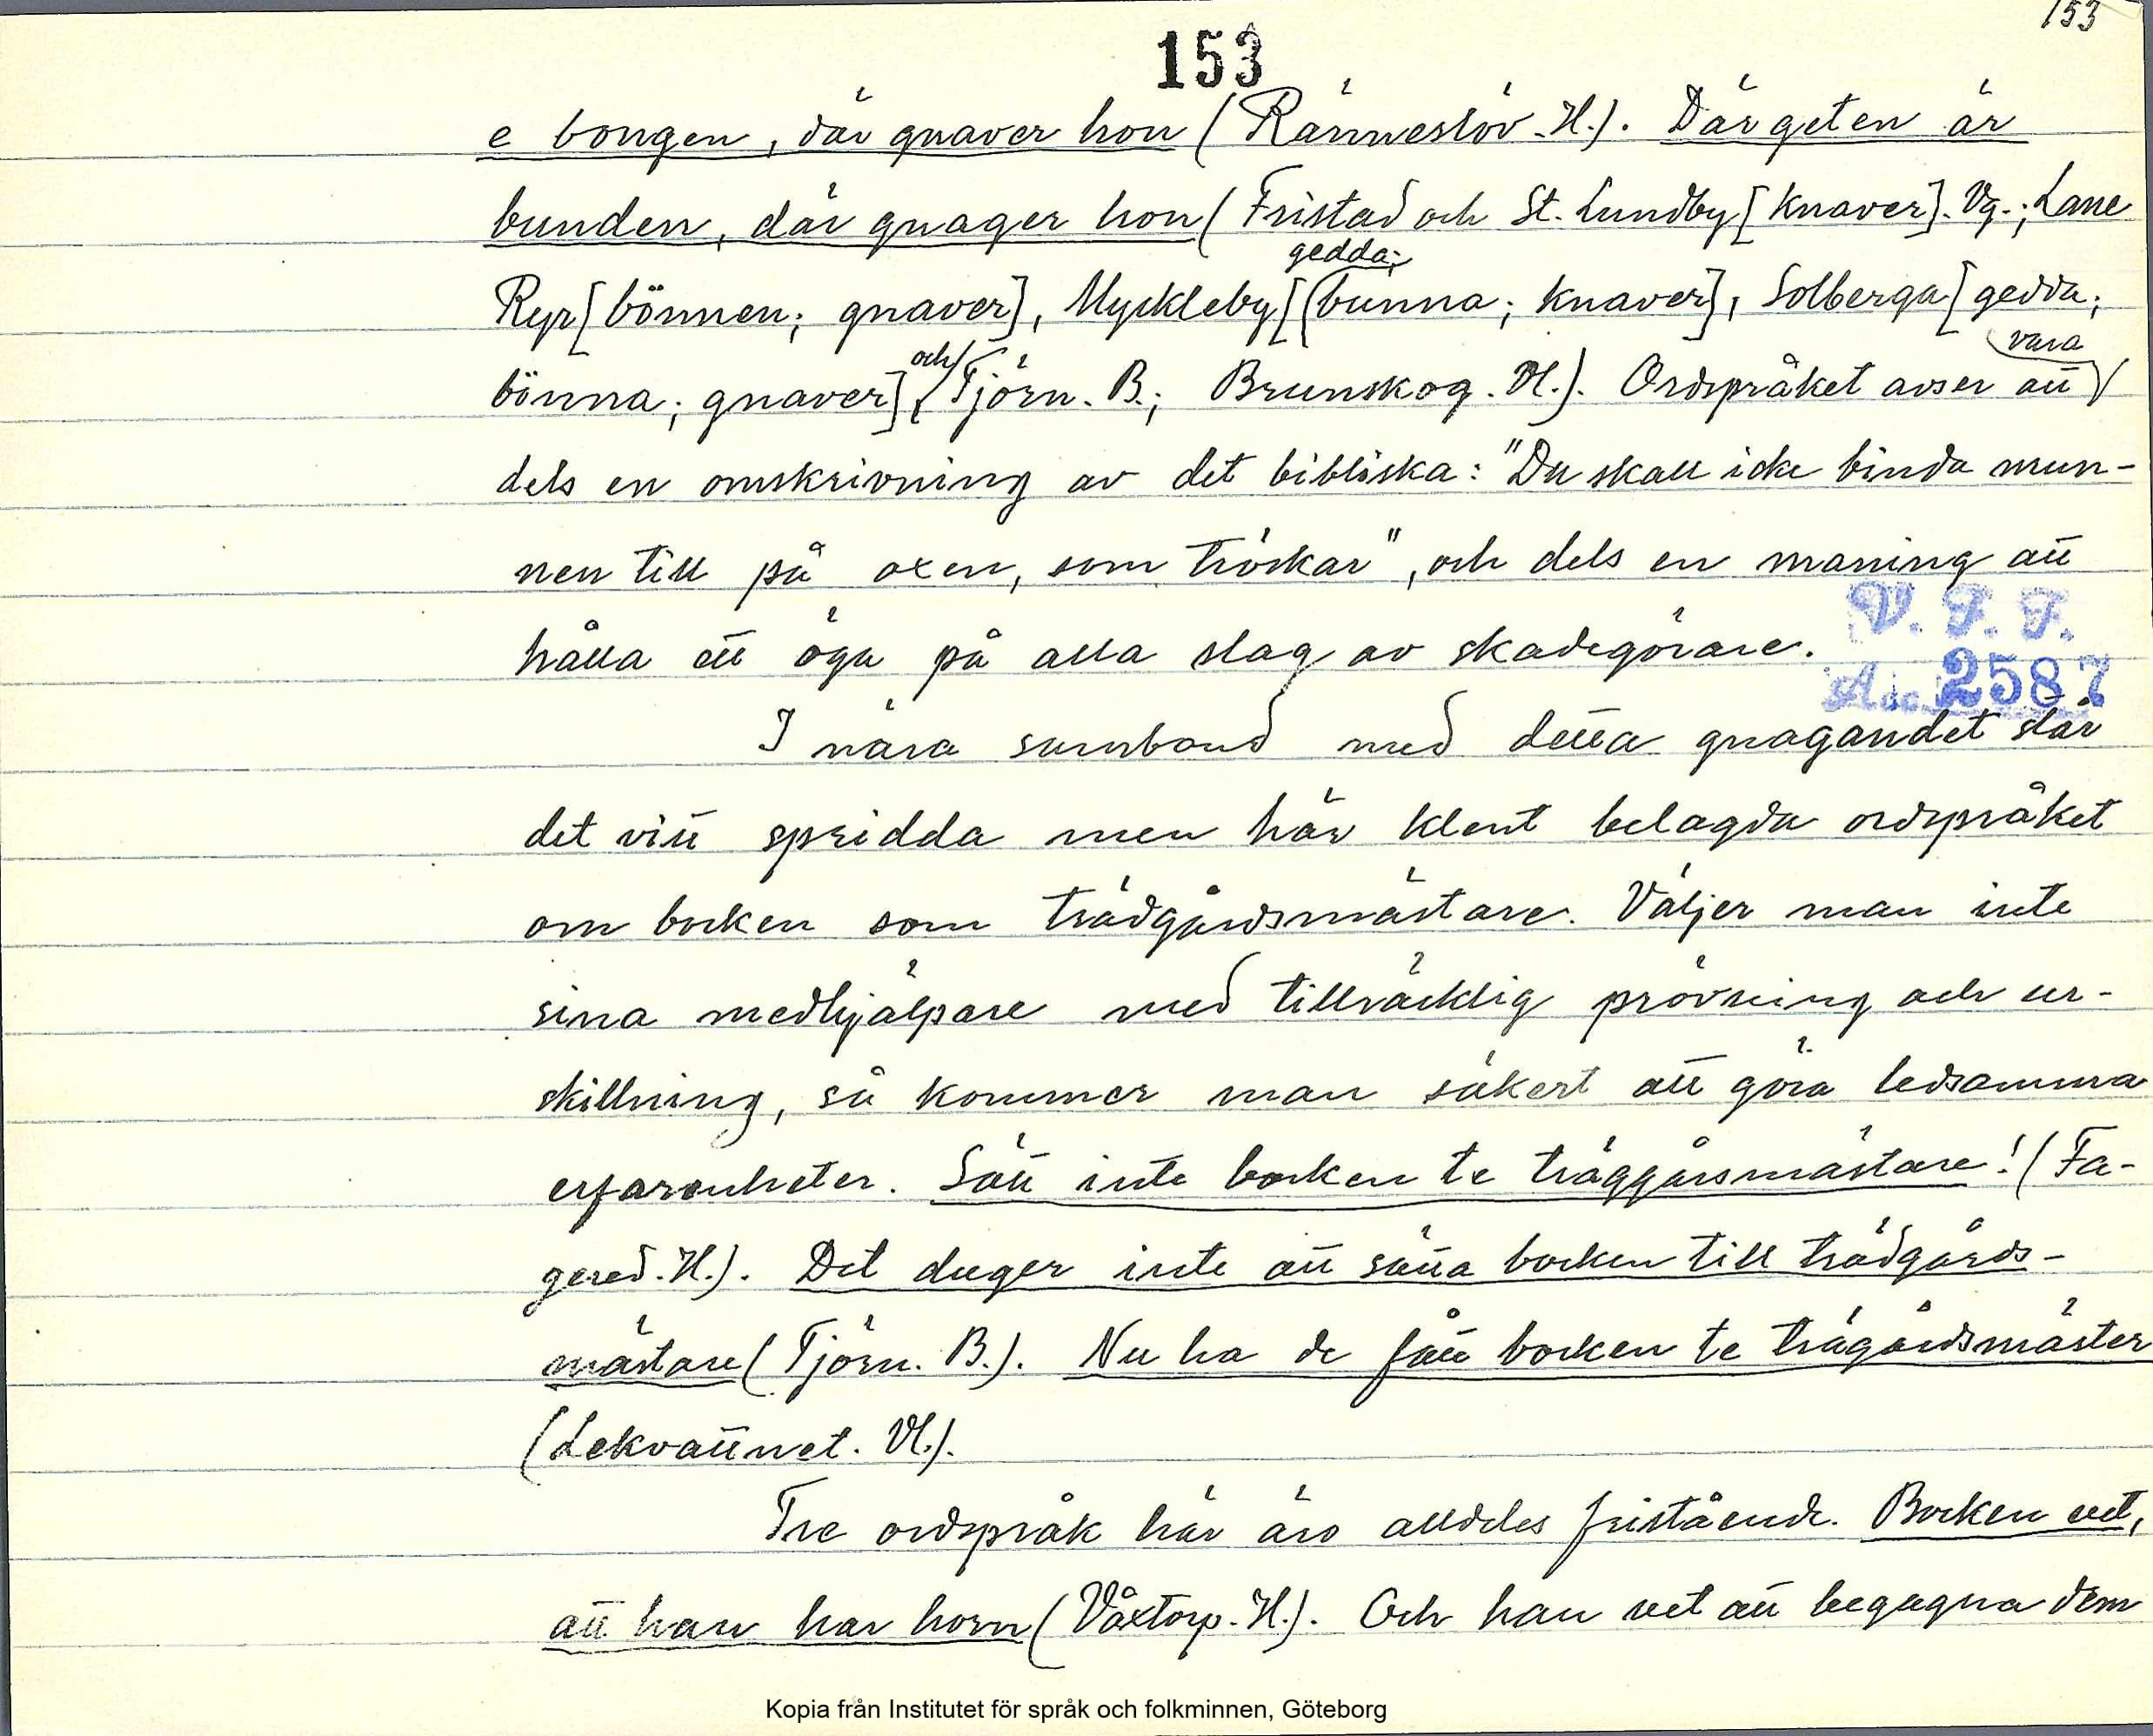 153
153
e bongen, där gnaver hon (Ränneslöv. H.). Där geten är
bunden, där gnager hon (Fristad och St. Lundby [knaver]. Vg.; Lane
gedda;
Ryr [bönnen; gnaver], Myckleby [(bunna; knaver], Solberga [gedda;
och vara
bönna; gnaver], Tjörn. B.; Brunskog. Vl.). Ordspråket avser att
dels en omskrivning av det bibliska: "Du skall icke binda mun-
nen till på oxen, som tröskar", och dels en maning att
hålla ett öga på alla slag av skadegörare.
V. F. F.
Acc. 2587
I nära samband med detta gnagandet står
det vitt spridda men här klent belagda ordspråket
om bocken som trädgårdsmästare. Väljer man inte
sina medhjälpare med tillräcklig prövning och ur-
skillning, så kommer man säkert att göra ledsamma
erfarenheter. Sätt inte bocken te träggårsmästare! (Fa-
gered. H.). Det duger inte att sätta bocken till trädgårds-
mästare (Tjörn. B.). Nu ha de fått bocken te trägårdsmäster
(Lekvattnet. Vl.).
Tre ordspråk här äro alldeles fristående. Bocken vet,
att han har horn (Våxtorp. H.). Och han vet att begagna dem
Kopia från Institutet för språk och folkminnen, Göteborg